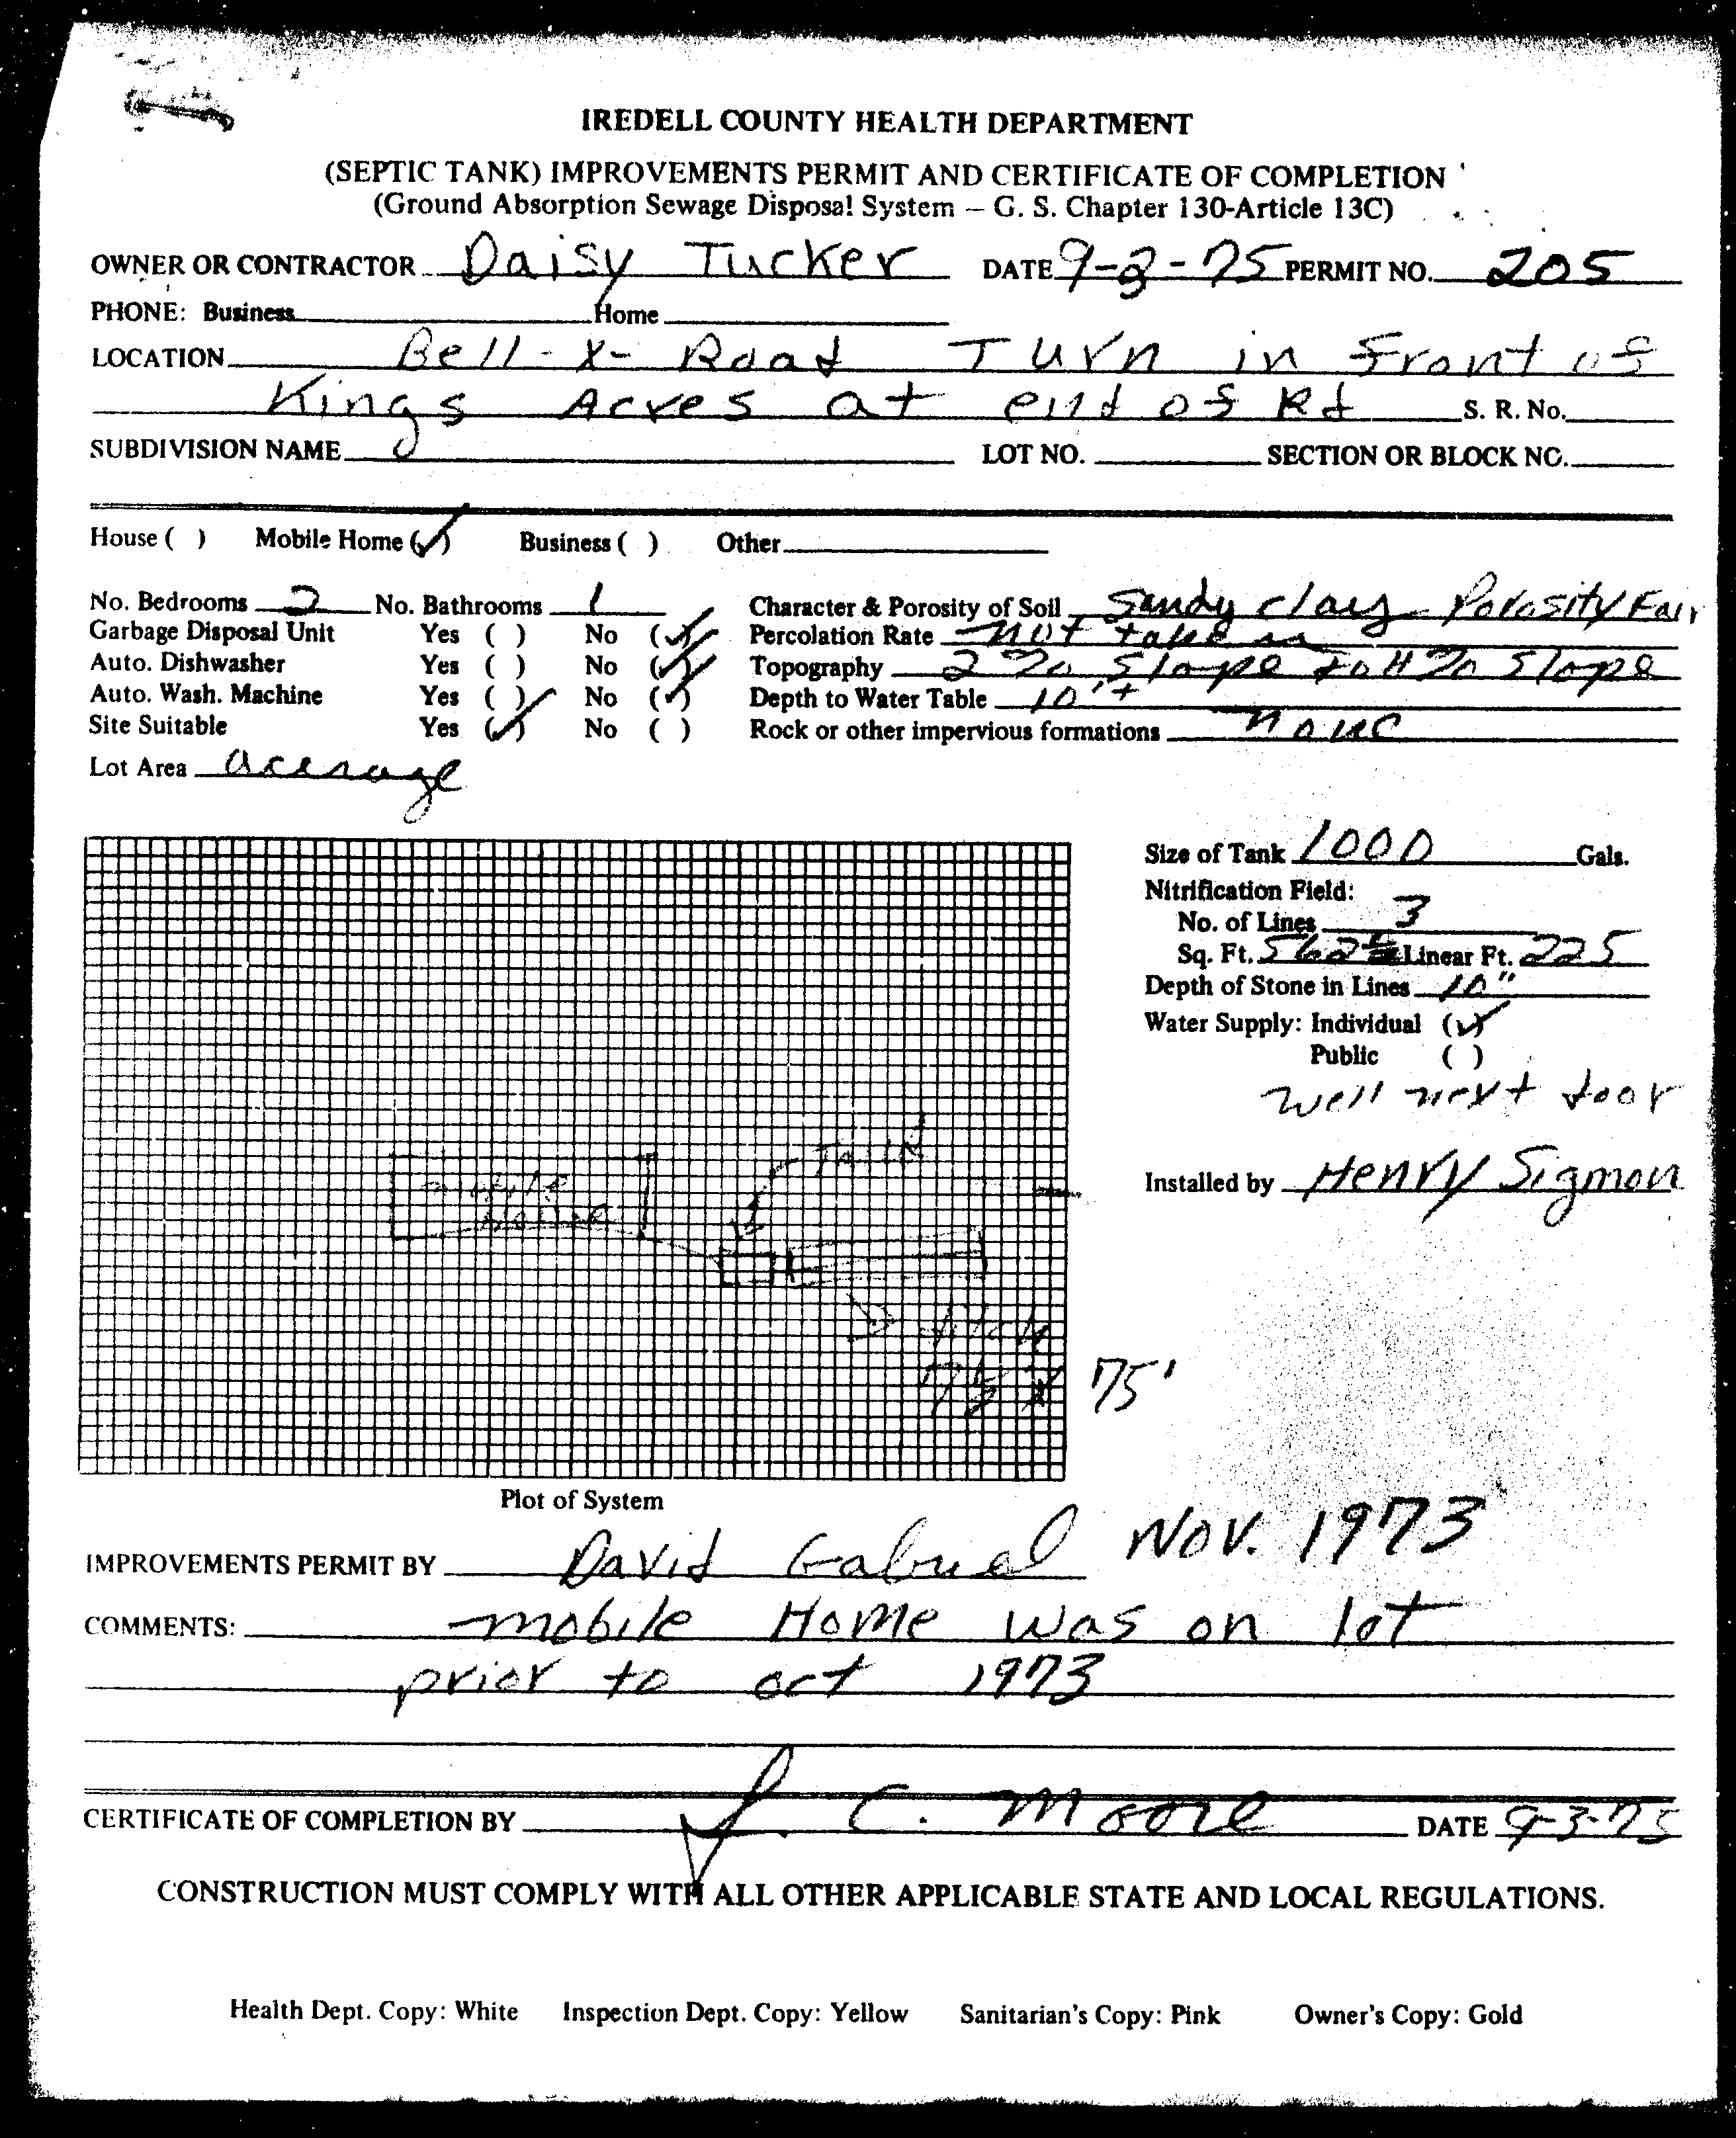 IREDELL COUNTY HEALTH DEPARTMENT
(SEPTIC TANK) IMPROVEMENTS PERMIT AND CERTIFICATE OF COMPLETION
(Ground Absorption Sewage Disposal System – G. S. Chapter 130-Article 13C)
OWNER OR CONTRACTOR Daisy Tucker DATE 9-2-75 PERMIT NO. 205
PHONE: Business Home
LOCATION Bell-X-Road Turn in front of
Kings Acres at end of Rd S. R. No.
SUBDIVISION NAME LOT NO. SECTION OR BLOCK NO.
House ( ) Mobile Home (✓) Business ( ) Other
No. Bedrooms 2 No. Bathrooms 1 Character & Porosity of Soil Sandy clay Porosity Fair
Garbage Disposal Unit Yes ( ) No (✓) Percolation Rate not taken
Auto. Dishwasher Yes ( ) No (✓) Topography 2% Slope to 4% Slope
Auto. Wash. Machine Yes ( ) No (✓) Depth to Water Table 10'+
Site Suitable Yes (✓) No ( ) Rock or other impervious formations none
Lot Area acerage
Size of Tank 1000 Gals.
Nitrification Field:
No. of Lines 3
Sq. Ft. 562 Linear Ft. 225
Depth of Stone in Lines 10"
Water Supply: Individual (✓)
Public ( )
well next door
Installed by Henry Sigmon
Mobile
Home
Tank
75'
Plot of System
IMPROVEMENTS PERMIT BY David Gabriel Nov. 1973
COMMENTS: mobile Home was on lot
prior to oct 1973
CERTIFICATE OF COMPLETION BY J. C. Moore DATE 9-3-75
CONSTRUCTION MUST COMPLY WITH ALL OTHER APPLICABLE STATE AND LOCAL REGULATIONS.
Health Dept. Copy: White Inspection Dept. Copy: Yellow Sanitarian's Copy: Pink Owner's Copy: Gold